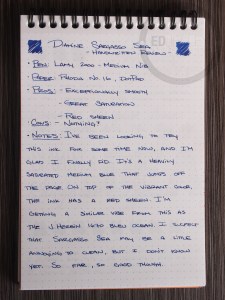 Diamine Sargasso Sea
- Handwritten Review -
· Pen: Lamy 2000 - Medium Nib
· Paper: Rhodia No. 16, DotPad
· Pros: - Exceptionally smooth
- Great Saturation
- Red sheen
· Cons: - Nothing?
· Notes: I've been looking to try
this ink for some time now, and I'm
glad I finally did. It's a heavily
saturated medium blue that jumps off
the page. On top of the vibrant color,
the ink has a red sheen. I'm
getting a similar vibe from this as
the J. Herbin 1670 Bleu Ocean. I suspect
that Sargasso Sea may be a little
annoying to clean, but I don't know
yet. So far, so good though.